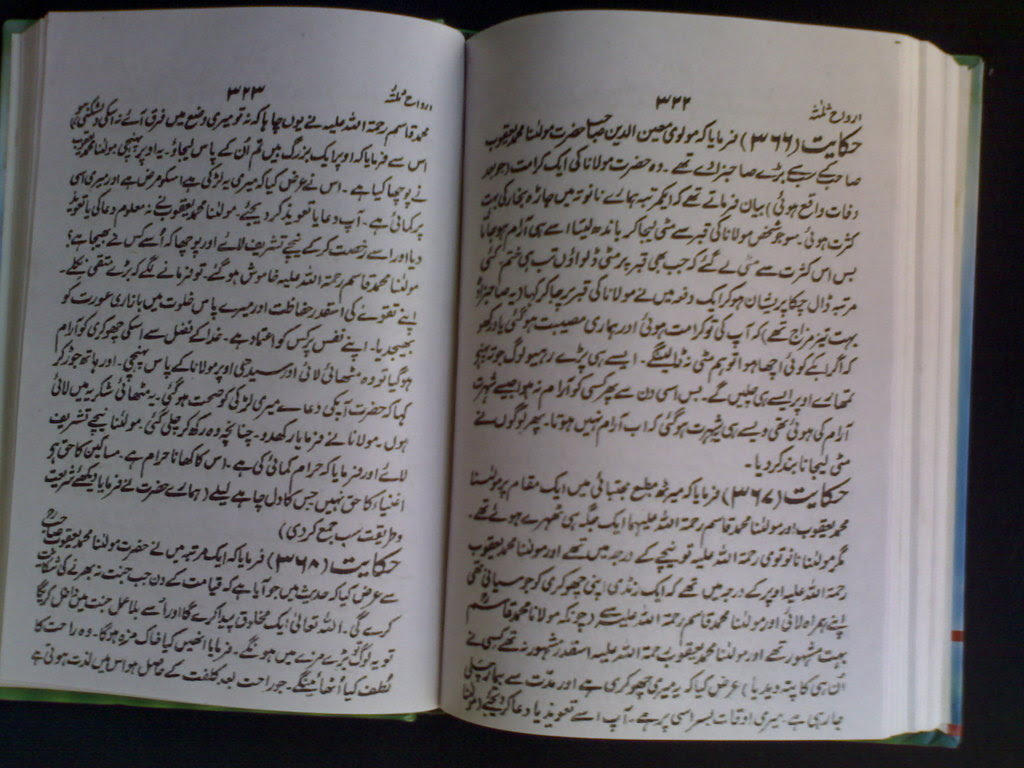 ارواح ثلٰثہ
۳۲۲
حکایت (۳۶۶) فرمایا کہ مولوی معین الدین صاحب حضرت مولٰنا محمد یعقوب
صاحب کے سب سے بڑے صاحبزادے تھے۔ وہ حضرت مولانا کی ایک کرامت (جو بعد
وفات واقع ہوئی) بیان فرماتے تھے کہ ایک مرتبہ ہمارے نانوتہ میں جاڑہ بخار کی بہت
کثرت ہوئی۔ سو جو شخص مولانا کی قبر سے مٹی لیجا کر باندھ لیتا اسے ہی آرام ہو جاتا
بس اس کثرت سے مٹی لے گئے کہ جب بھی قبر پر مٹی ڈلواؤں تب ہی ختم کئی
مرتبہ ڈال چکا پریشان ہو کر ایک دفعہ میں نے مولانا کی قبر پر جا کر کہا (یہ صاحبزادے
بہت تیز مزاج تھے) کہ آپ کی تو کرامت ہوئی اور ہماری مصیبت ہو گئی یاد رکھو
کہ اگر اب کے کوئی اچھا ہوا تو ہم مٹی نہ ڈالینگے۔ ایسے ہی پڑے رہیو لوگ جوتہ پہنچ
تمہارے اوپر ایسے ہی چلیں گے۔ بس اسی دن سے پھر کسی کو آرام نہ ہوا جیسے شہرت
آرام کی ہوئی تھی ویسے ہی یہ شہرت ہو گئی کہ اب آرام نہیں ہوتا۔ پھر لوگوں نے
مٹی لیجانا بند کر دیا۔
حکایت (۳۶۷) فرمایا کہ میرٹھ مطبع مجتبائی میں ایک مقام پر مولٰنا
محمد یعقوب اور مولٰنا محمد قاسم رحمۃ اللہ علیہما ایک جگہ ہی ٹھہرے ہوئے تھے۔
مگر مولٰنا نانوتوی رحمۃ اللہ علیہ تو نیچے کے درجہ میں تھے اور مولٰنا محمد یعقوب
رحمۃ اللہ علیہ اوپر کے درجہ میں تھے کہ ایک رنڈی اپنی چھوکری کو جو سیانی تھی
اپنے ہمراہ لائی اور مولٰنا محمد قاسم رحمۃ اللہ علیہ سے (چونکہ مولانا محمد قاسم
بہت مشہور تھے اور مولٰنا محمد یعقوب رحمۃ اللہ علیہ اسقدر مشہور نہ تھے کسی نے
ان ہی کا پتہ دیدیا) عرض کیا کہ یہ میری چھوکری ہے اور مدت سے بیمار
چلی جا رہی ہے۔ میری اوقات بسر اسی پر ہے۔ آپ اسے تعویذ یا دعا کر دیجئے (مولٰنا
ارواح ثلٰثہ
۳۲۳
محمد قاسم رحمۃ اللہ علیہ نے یوں چاہا کہ نہ تو میری وضع میں فرق آئے نہ اسکی دلشکنی ہو
اس سے فرمایا کہ اوپر ایک بزرگ ہیں تم اُن کے پاس لیجاؤ۔ یہ اوپر پہنچی مولٰنا محمد یعقوب
نے پوچھا کیا ہے۔ اس نے عرض کیا کہ میری یہ لڑکی ہے اسکو مرض ہے اور میری اسی
پر کمائی ہے۔ آپ دعا یا تعویذ کر دیجئے۔ مولٰنا محمد یعقوب نے نہ معلوم دعا کی یا تعویذ
دیا اور اسے رخصت کر کے نیچے تشریف لائے اور پوچھا کہ اُسے کس نے بھیجا ہے؟
مولٰنا محمد قاسم رحمۃ اللہ علیہ خاموش ہو گئے۔ تو فرمانے لگے کہ بڑے متقی نکلے۔
اپنے تقوے کی اسقدر حفاظت اور میرے پاس خلوت میں بازاری عورت کو
بھیجدیا۔ اپنے نفس پر کس کو اعتماد ہے۔ خدا کے فضل سے اسکی چھوکری کو آرام
ہو گیا تو وہ مٹھائی لائی اور سیدھی اوپر مولانا کے پاس پہنچی۔ اور ہاتھ جوڑ کر
کہا کہ حضرت آپکی دعا سے میری لڑکی کو صحت ہو گئی۔ یہ مٹھائی شکریہ میں لائی
ہوں۔ مولانا نے فرمایا رکھدو۔ چنانچہ وہ رکھ کر چلی گئی۔ مولٰنا نیچے تشریف
لائے اور فرمایا کہ حرام کمائی کی ہے۔ اس کا کھانا حرام ہے۔ مساکین کا حق ہو
اغنیاء کا حق نہیں جس کا دل چاہے لیلے (ہمارے حضرت نے فرمایا دیکھئے شریعت
و طریقت سب جمع کر دی)
حکایت (۳۶۸) فرمایا کہ ایک مرتبہ میں نے حضرت مولٰنا محمد یعقوب صاحب
سے عرض کیا کہ حدیث میں جو آیا ہے کہ قیامت کے دن جب جنت نہ بھرنے کی شکایت
کرے گی۔ اللہ تعالٰی ایک مخلوق پیدا کرے گا اور اُسے بلا عمل جنت میں داخل کریگا
تو یہ لوگ بڑے مزے میں ہونگے۔ فرمایا انھیں کیا خاک مزہ ہوگا۔ وہ راحت کا
لُطف کیا اُٹھائینگے۔ جو راحت بعد کلفت کے حاصل ہو اس میں لذت ہوتی ہے